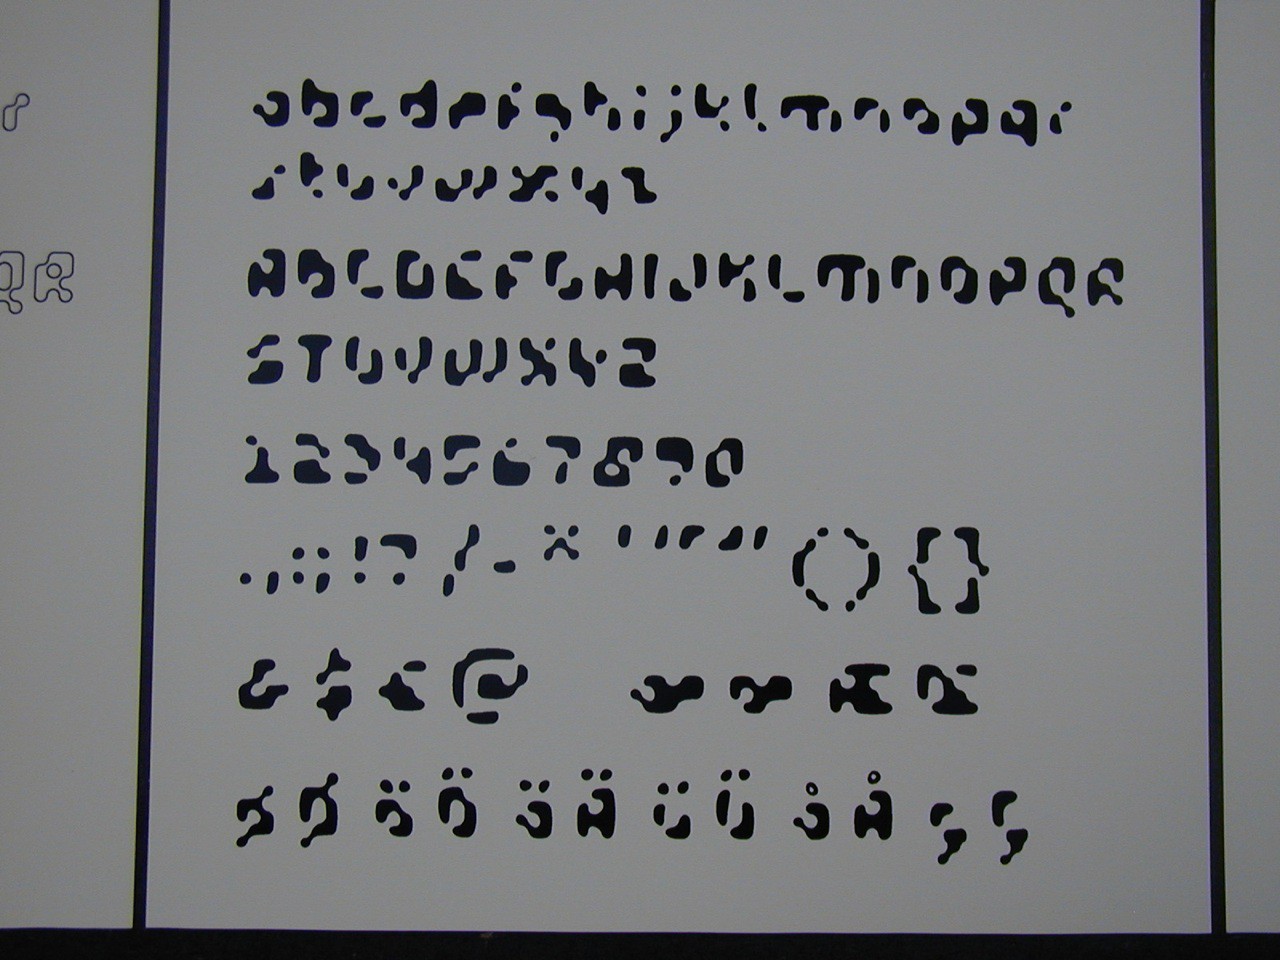 abcdefghijklmnopqr
stuvwxyz
ABCDEFGHIJKLMNOPQR
STUVWXYZ
1234567890
.,:;!?/-* ' " " ( ) { }
&$€@ æ œ Æ Œ
ø Ø ö Ö ä Ä ü Ü å Å ç Ç
QR
r